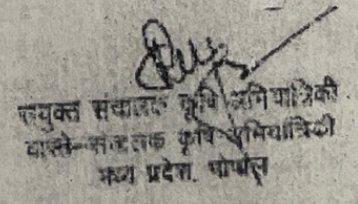 संयुक्त संचालक कृषि अभियांत्रिकी
वास्ते-संचालक कृषि अभियांत्रिकी
मध्य प्रदेश, भोपाल